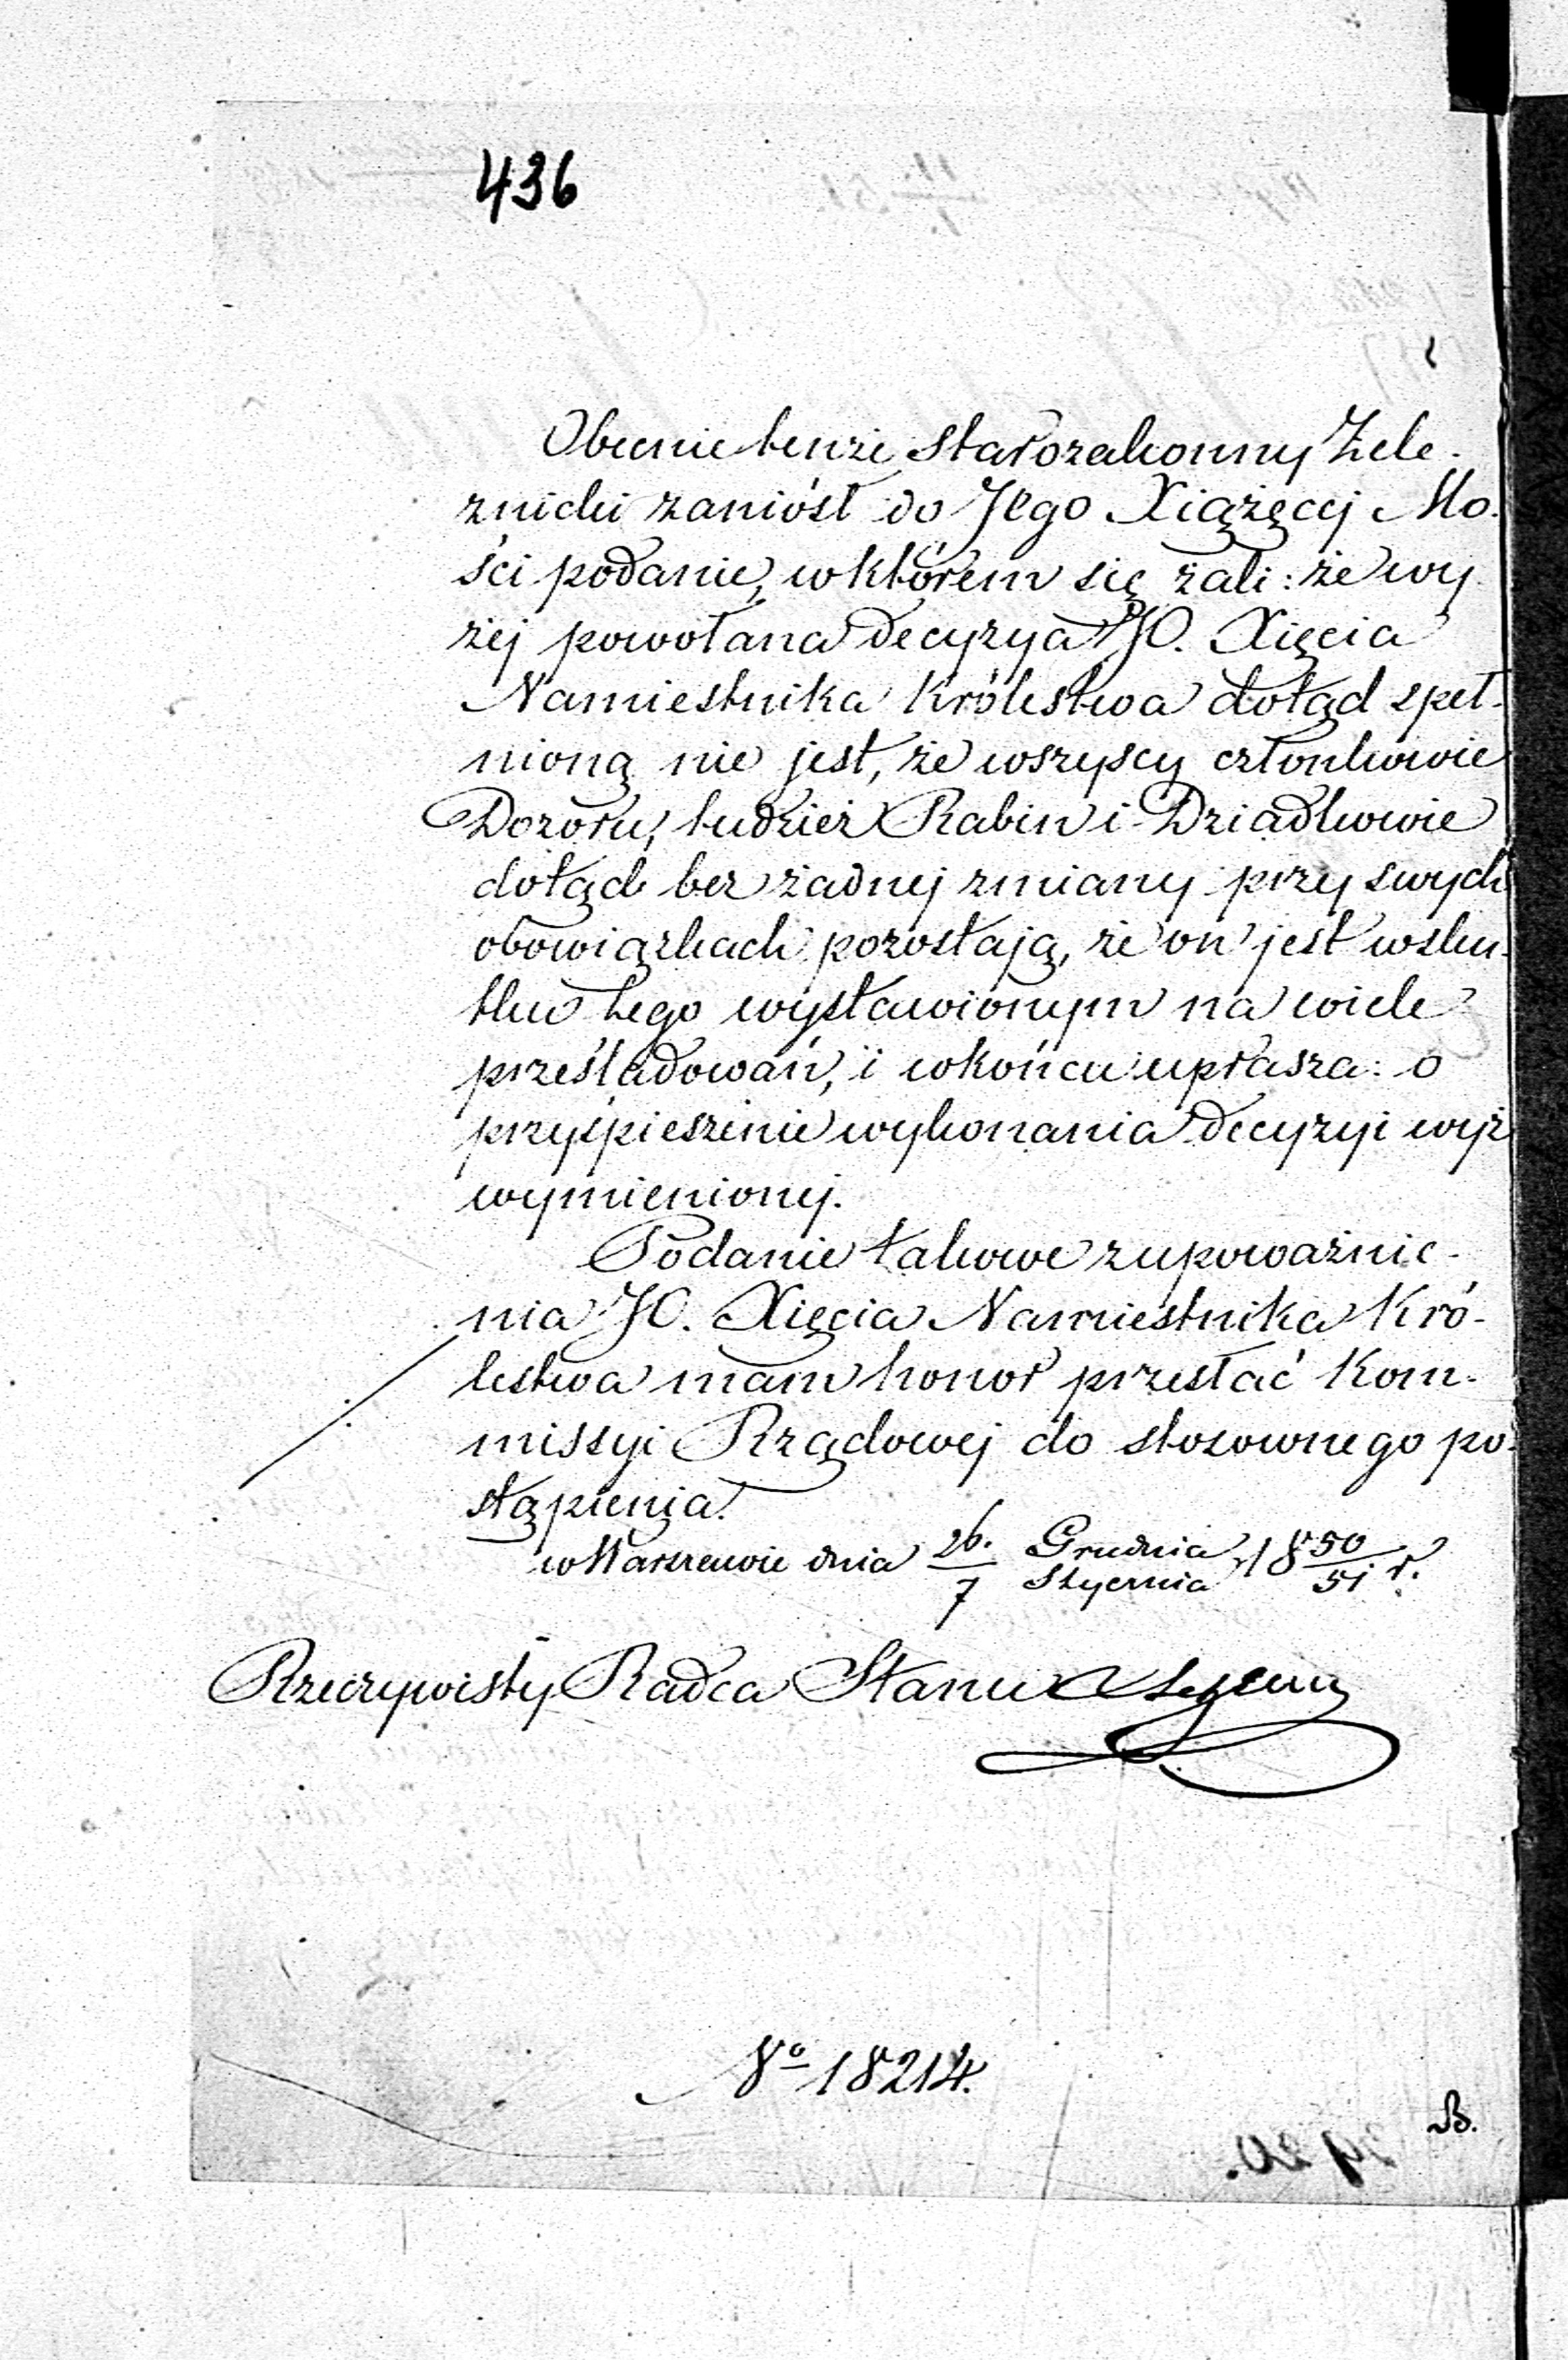 436
Obecnie tenże starozakonny Żele-
znicki zaniósł do Jego Xiążęcej Mo-
ści podanie, w którem się żali: że wy-
żej powołana decyzya JO. Xięcia
Namiestnika Królestwa dotąd speł-
nioną nie jest, że wszyscy członkowie
Dozoru, tudzież Rabin i Dziadkowie
dotąd bez żadnej zmiany przy swych
obowiązkach pozostają, że on jest wsku-
tku tego wystawionym na wiele
prześladowań, i wkońcu uprasza: o
przyśpieszenie wykonania decyzyi wyż
wymienionej.
Podanie takowe z upoważnie-
nia JO. Xięcia Namiestnika Kró-
lestwa mam honor przesłać Kom-
missyi Rządowej do stosownego po-
stąpienia.
w Warszawie dnia 26/7 Grudnia/Stycznia 1850/51 r.
Rzeczywisty Radca Stanu
No 18214.
B.